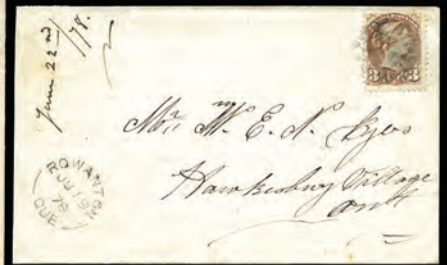 June 22nd
/78.
3 3
Mr. Wm. E. N. Byers
Hawkesbury Village
Ont
ROWANTON
JU 19
78
QUE